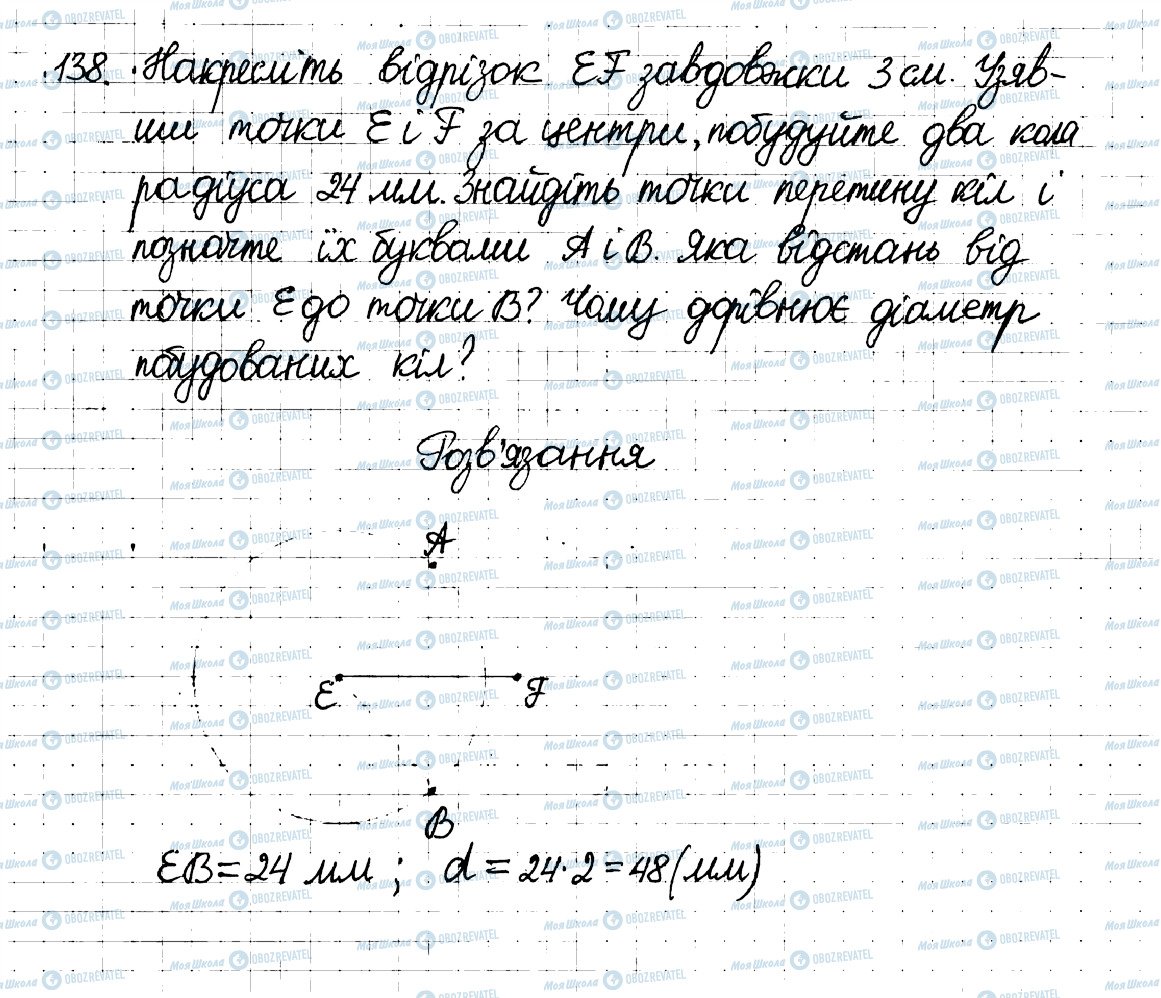 138. Накресліть відрізок EF завдовжки 3 см. Узяв-
ши точки E і F за центри, побудуйте два кола
радіуса 24 мм. Знайдіть точки перетину кіл і
позначте їх буквами A і B. Яка відстань від
точки E до точки B? Чому дорівнює діаметр
побудованих кіл?
Розв'язання
A
E F
B
EB = 24 мм ; d = 24·2 = 48 (мм)